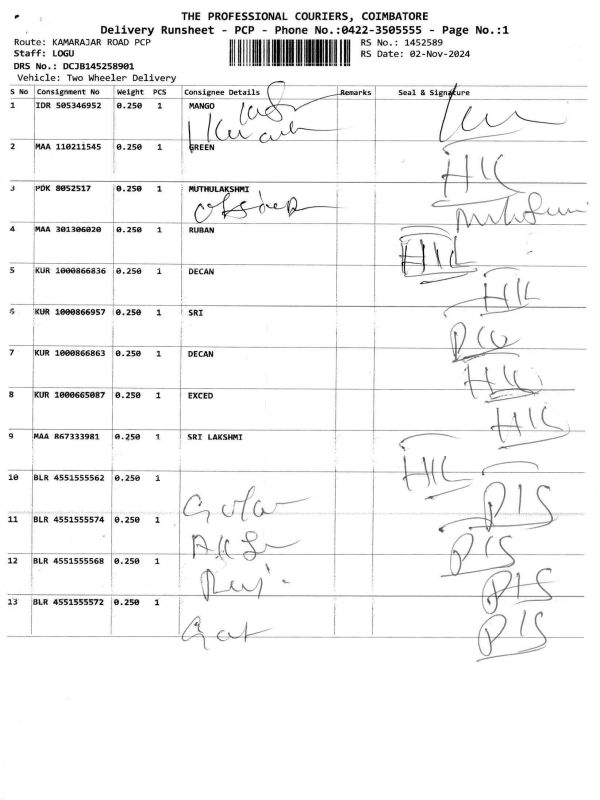 THE PROFESSIONAL COURIERS, COIMBATORE
Delivery Runsheet - PCP - Phone No.:0422-3505555 - Page No.:1
Route: KAMARAJAR ROAD PCP RS No.: 1452589
Staff: LOGU RS Date: 02-Nov-2024
DRS No.: DCJB145258901
Vehicle: Two Wheeler Delivery
S No Consignment No Weight PCS Consignee Details Remarks Seal & Signature
1 IDR 505346952 0.250 1 MANGO
2 MAA 110211545 0.250 1 GREEN
HIL
3 PDK 8052517 0.250 1 MUTHULAKSHMI
4 MAA 301306020 0.250 1 RUBAN
HIL
5 KUR 1000866836 0.250 1 DECAN
HIL
6 KUR 1000866957 0.250 1 SRI
7 KUR 1000866863 0.250 1 DECAN
HIL
8 KUR 1000665087 0.250 1 EXCED
HIL
9 MAA 867333981 0.250 1 SRI LAKSHMI
HIL
10 BLR 4551555562 0.250 1
PIS
11 BLR 4551555574 0.250 1
PIS
12 BLR 4551555568 0.250 1
PIS
13 BLR 4551555572 0.250 1
PIS